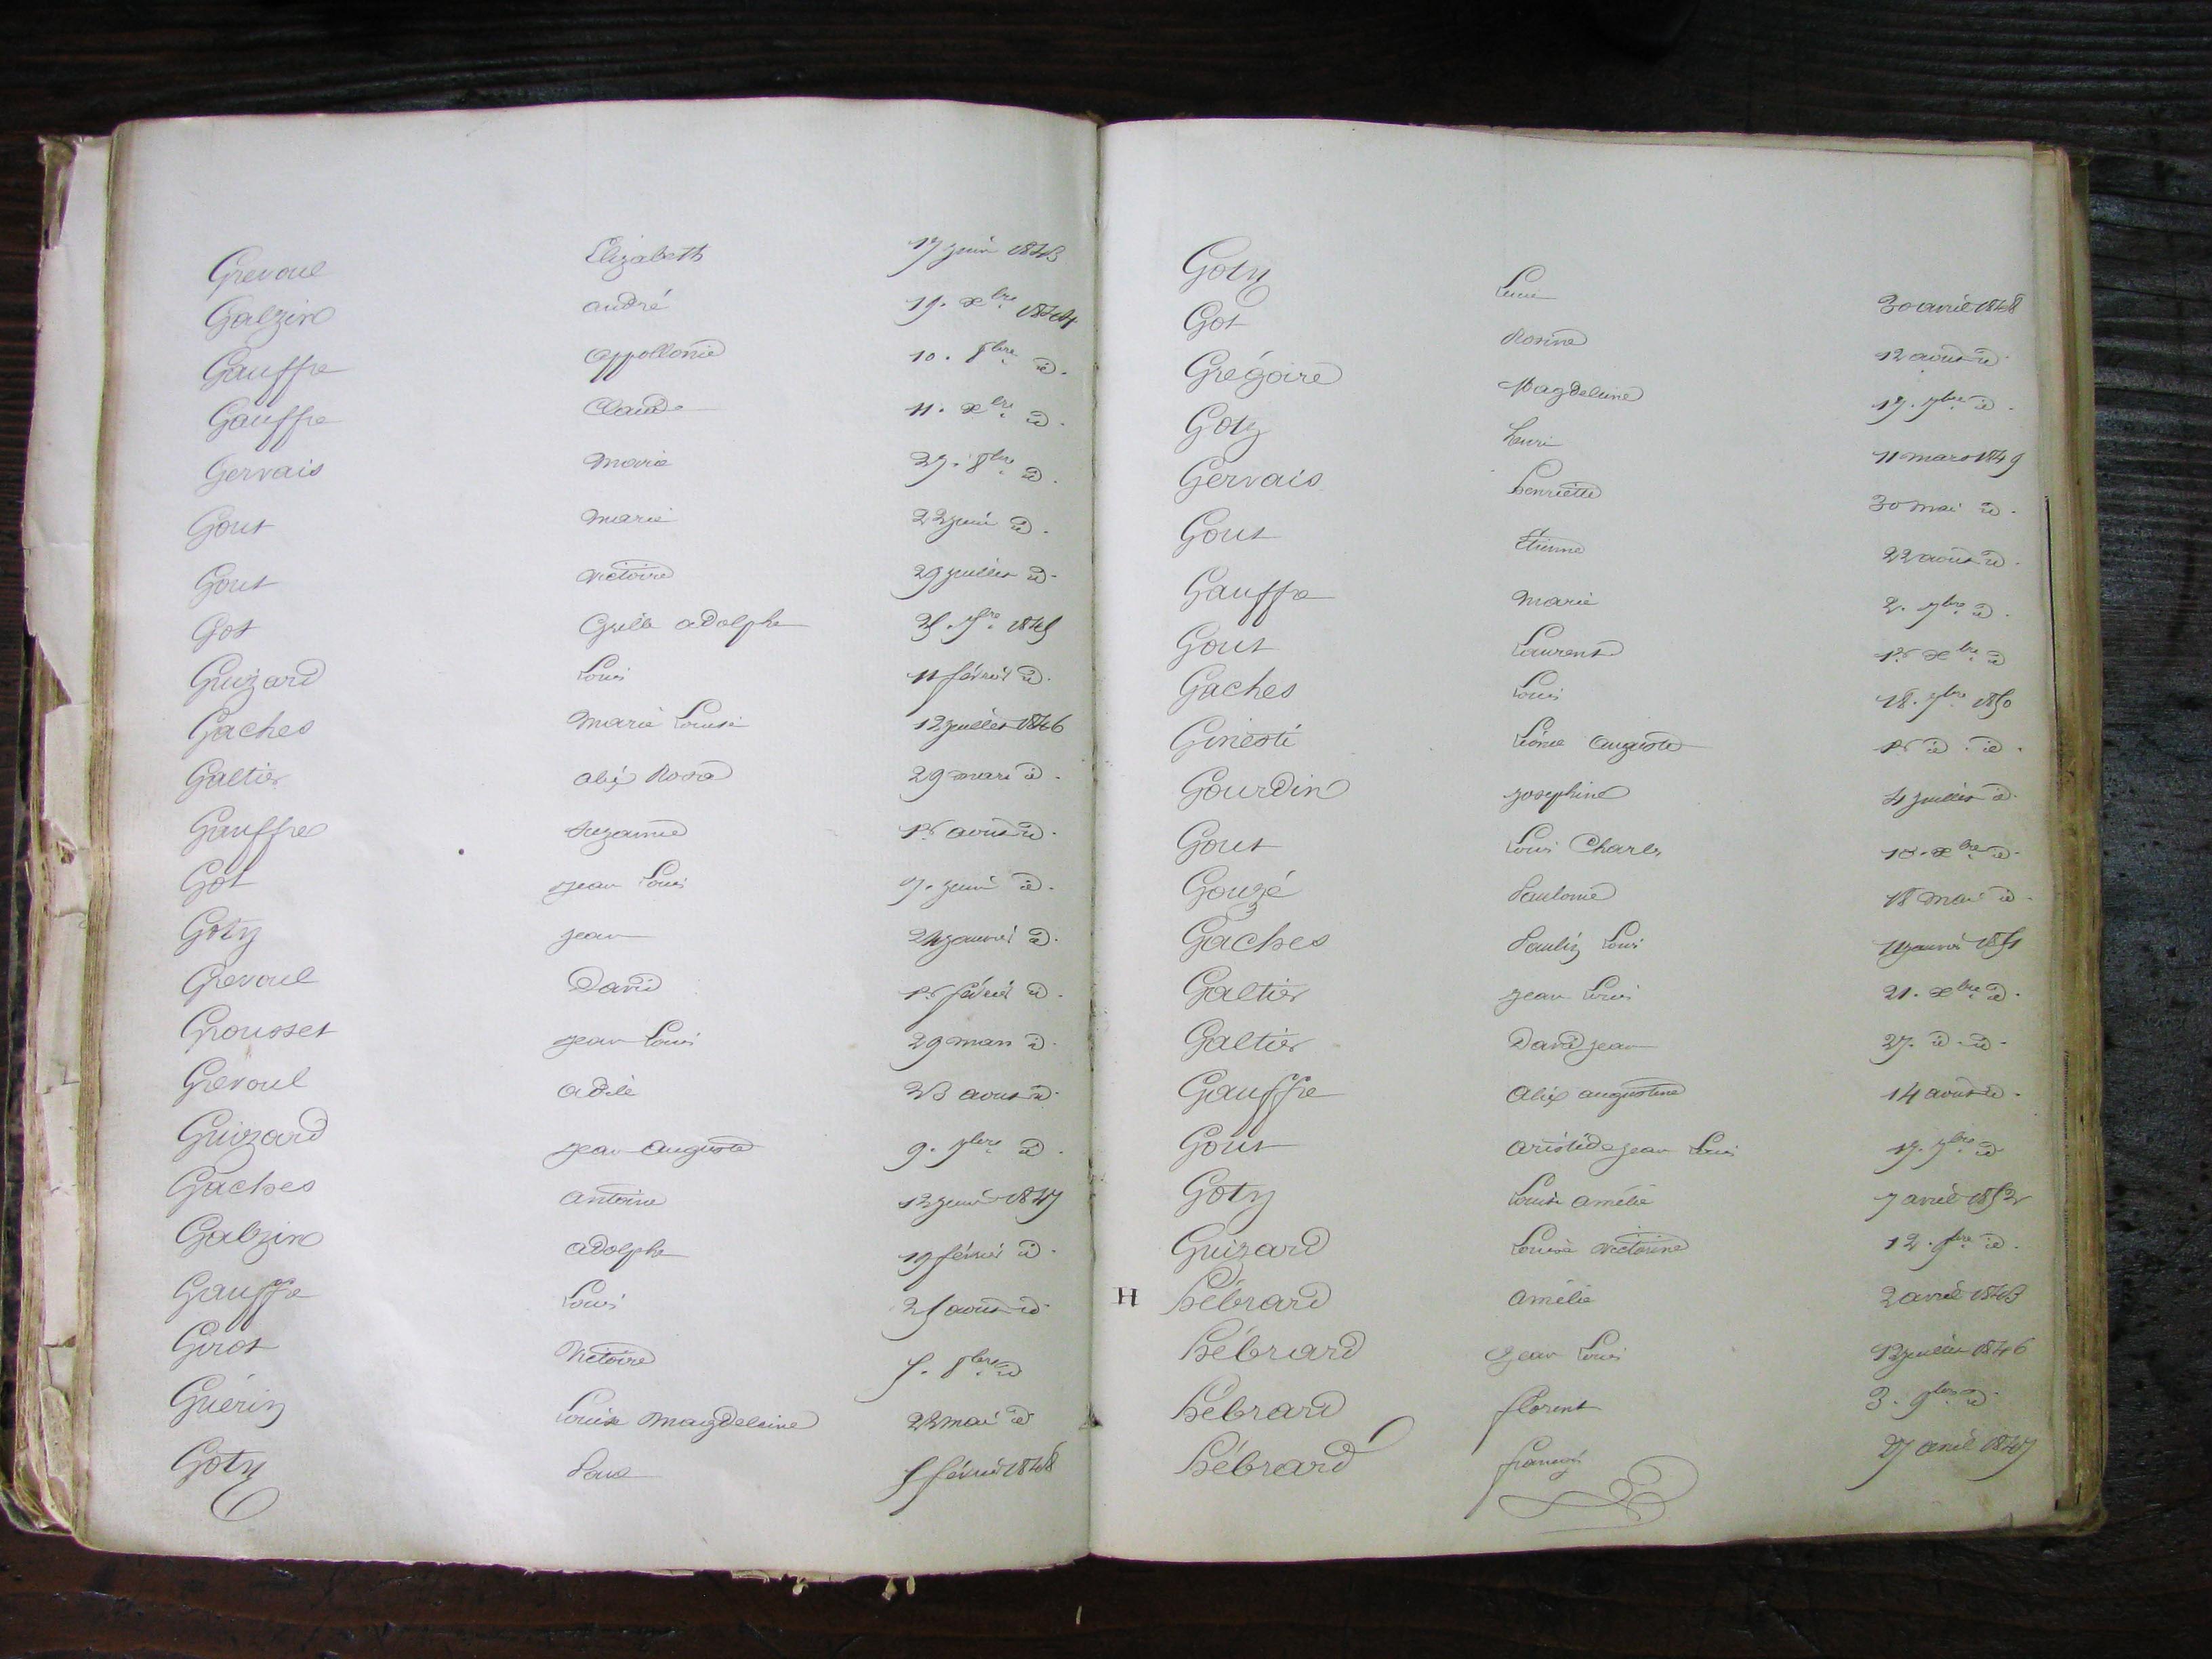 Grevoul Elizabeth 17 juin 1843
Galzin andré 19. xbre 1844
Gauffre appollonie 10. 8bre id.
Gauffre Claude 11. xbre id.
Gervais Marie 27. 8bre id.
Gout marie 22 juin id.
Gout victoire 29 juillet id.
Got adolphe 1845
Guizard Louis 11 février id.
Gaches Marie Louise 12 juillet 1846
Galtier alix Rosa 29 mars id.
Gauffre Suzanne 1er aout id.
Got jean Louis 7. juin id.
Goty jean 24 janvier id.
Grevoul David 1er février id.
Grousset jean Louis 29 mars id.
Grevoul adèle 23 aout id.
Guizard jean auguste 9. 7bre id.
Gaches antoine 12 juin 1847
Galzin adolphe 19 février id.
Gauffre Louis 25 aout id.
Girot Victoire 5. 8bre id
Guérin Louise Magdeleine 22 mai id
Goty 5 février 1848
Goty 30 avril 1848
Got Rosine 12 aout id.
Grégoire Magdeleine 17. 7bre id.
Goty henri 11 mars 1849
Gervais henriette 30 mai id.
Gout Etienne 22 aout id.
Gauffre Marie 2. 7bre id.
Gout Laurent 1er xbre id
Gaches Louis 18. 7bre 1850
Ginesti auguste 1er id. id.
Gourdin josephine 4 juillet id.
Gout Louis Charles 10. xbre id.
Gouzé Paulonie 18 mai id.
Gaches Paulin Louis janvier 1851
Galtier jean Louis 21. xbre id.
Galtier David jean 27. id. id.
Gauffre alix augustine 14 aout id.
Gout aristide jean Louis 17. 7bre id
Goty Louise amélie 7 avril 1852
Guizard Louise victorine 12. 9bre id.
H hébrard amélie 2 avril 1843
hébrard jean Louis 12 juillet 1846
hébrard florent 3. 9bre id
hébrard françois 27 avril 1847